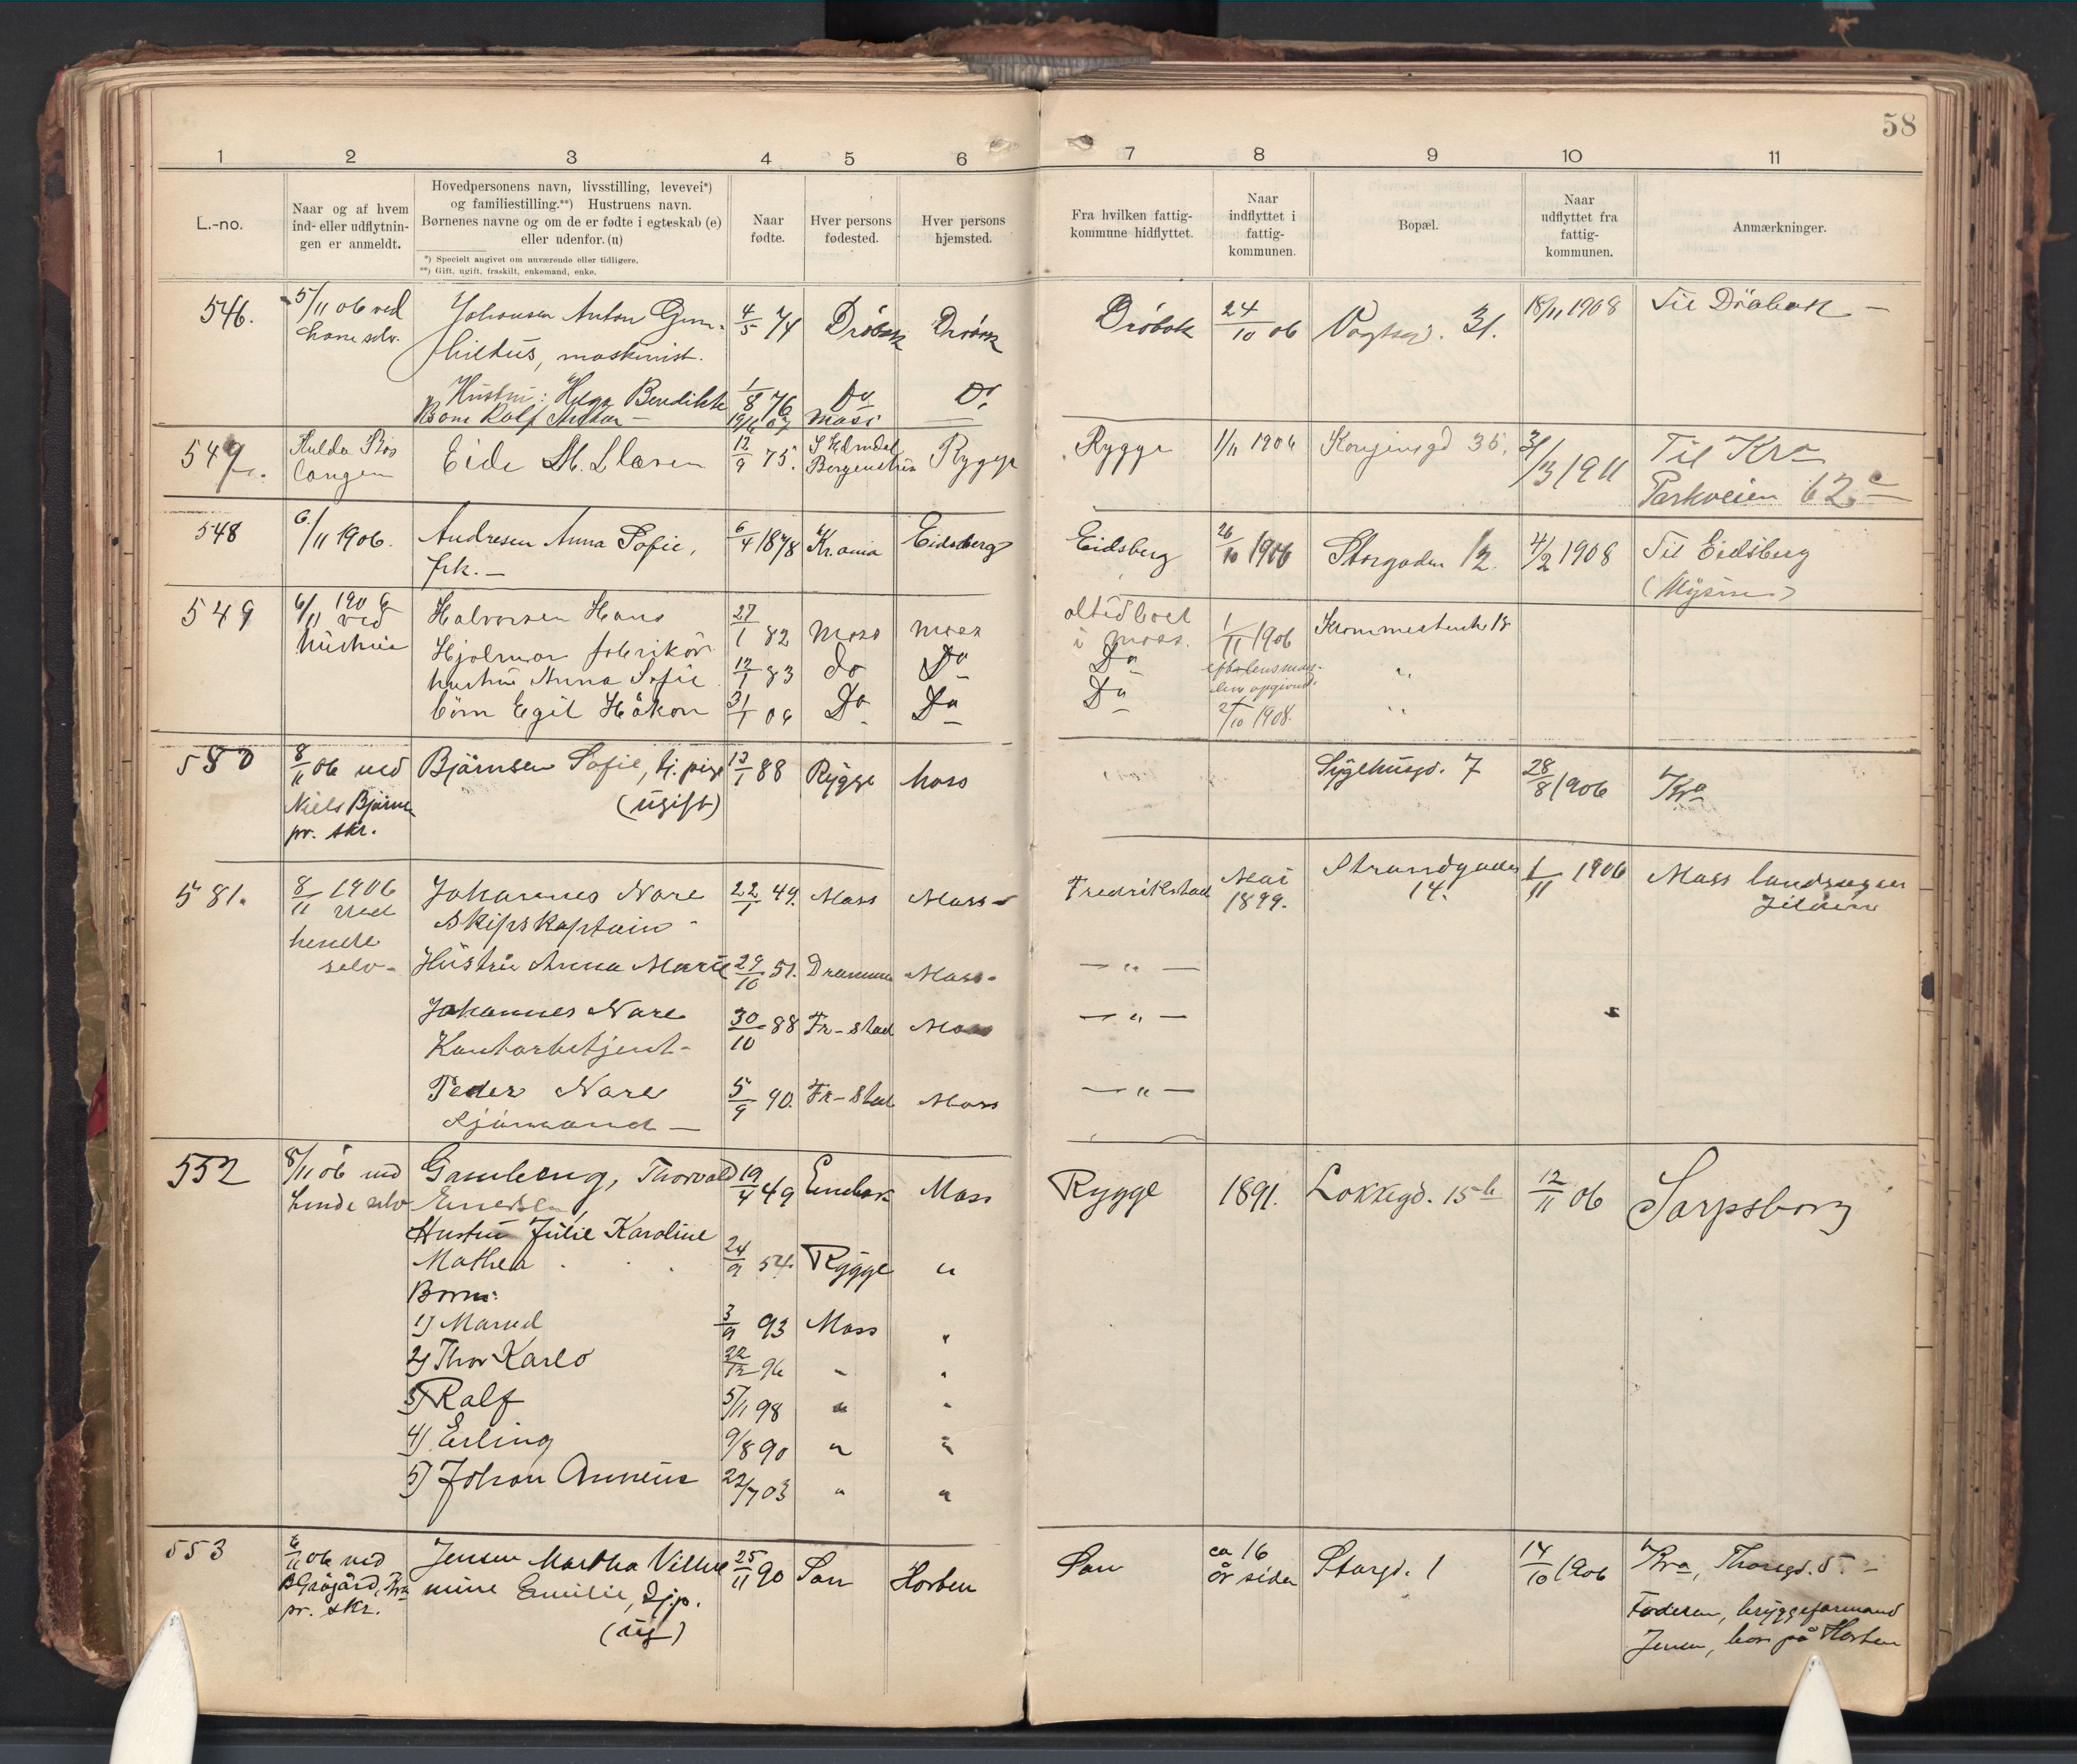 58
1 2 3 4 5 6 7 8 9 10 11
L.-no.
Naar og af hvem
ind- eller udflytnin-
gen er anmeldt.
Hovedpersonens navn, livsstilling, levevei*)
og familiestilling.**) Hustruens navn.
Børnenes navne og om de er fødte i egteskab (e)
eller udenfor. (u)
*) Specielt angivet om nuværende eller tidligere.
**) Gift, ugift, fraskilt, enkemand, enke.
Naar
fødte.
Hver persons
fødested.
Hver persons
hjemsted.
Fra hvilken fattig-
kommune hidflyttet.
Naar
indflyttet i
fattig-
kommunen.
Bopæl.
Naar
udflyttet fra
fattig-
kommunen.
Anmærkninger.
546.
5/11 06 ved
ham selv.
Johansen Anton Gun-
hiltus, maskinist.
4/5 74
Drøbak
Drøbak
Drøbak
24/10 06
Vogtsgd. 31.
18/11 1908
Til Drøbak —
Hustru: Helga Bendikk
1/8 76
Do
Do
Barn Rolf Anton —
Moss
547.
Hulda Ros
langen
Eide M. Clasen
12/9 75.
Rygge
Rygge
1/11 1906
Kongensgd 35,
31/13 1911
Til Kra
Parkveien 62 c
548
6/11 1906.
Andresen Anna Sofie,
frk. —
6/4 1878
Krania
Eidsberg
Eidsberg
26/10 1906
Storgaden 12.
4/2 1908
Til Eidsberg
(Mysen)
549
6/11 1906
ved
hustru
Halvorsen Hans
Hjalmar fabrikar
27/1 82
Moss
Moss
altid boet
i Moss.
1/11 1906
Krommestenk 18
hustru Anna Sofie
12/1 83
do
Do
Do
børn Egil Håkon
31/1 06
Do
Do
Do
2/10 1908.
580
8/11 06 ved
Niels Bjørns
pr. skr.
Bjørnsen Sofie, tj. pige
(ugift)
13/1 88
Rygge
Moss
Sygehusgd. 7
28/8 1906
Kra
581.
8/11 1906
ved
hende
selv-
Johannes Nare
Skipskaptain -
22/1 49.
Moss
Moss -
Fredrikstad
Mai
1899.
Strandgaden
14.
1/11 1906
Moss landsogn
Jeløen
Hustru Anna Marie
29/10 51.
Drammen
Moss -
— " —
Johannes Nare
Kontorbetjent -
30/10 88
Fr-stad
Moss
— " —
Peder Nare
Sjømand —
5/9 90.
Fr-stad
Moss
— " —
552
8/11 06 ved
hende selv
Gamleng, Thorvald
19/4 49
Enebak
Moss
Rygge
1891.
Løkkegd. 15 b
12/11 06
Sarpsborg
Hustru Julie Karoline
Mathea
24/9 54.
Rygge
"
Børn:
1) Marud
3/9 93
Moss
"
2) Thor Karlo
22/12 96
"
"
3) Ralf
5/11 98
"
"
4) Erling
9/8 90
"
"
5) Johan Anneus
22/7 03
"
"
553
6/11 06 ved
B. Grøgård, Kra
pr. skr.
Jensen Martha Vilhel
mine Emilie, Tj.p.
(ug)
25/11 90
Son
Horten
Son
ca 16
år siden
Storgd. 1
14/10 1906
Kra, Thorsgd. 5 —
Faderen, bryggeformand
Jensen, bor på Horten